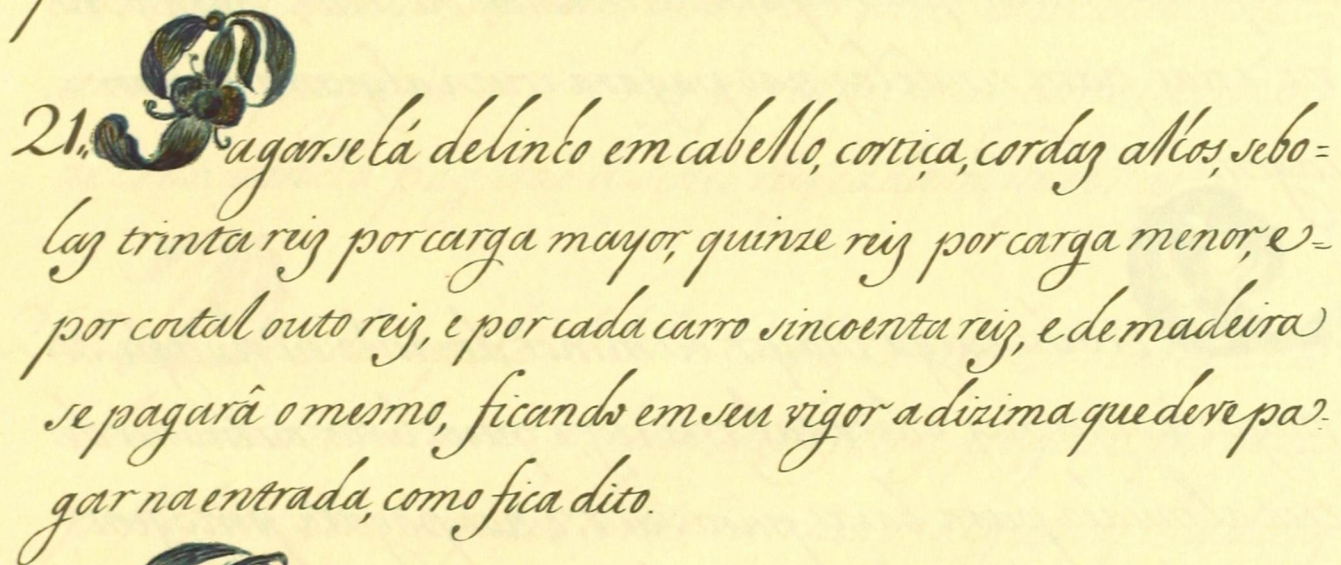 21,, Pagarselá delinho em cabello, cortiça, cordaz alhos, sebo=
laz trinta reiz por carga mayor, quinze reiz por carga menor, e=
por costal outo reiz, e por cada carro sincoenta reiz, e de madeira
se pagarâ o mesmo, ficando em seu vigor a dizima que deve pa-
gar na entrada, como fica dito.